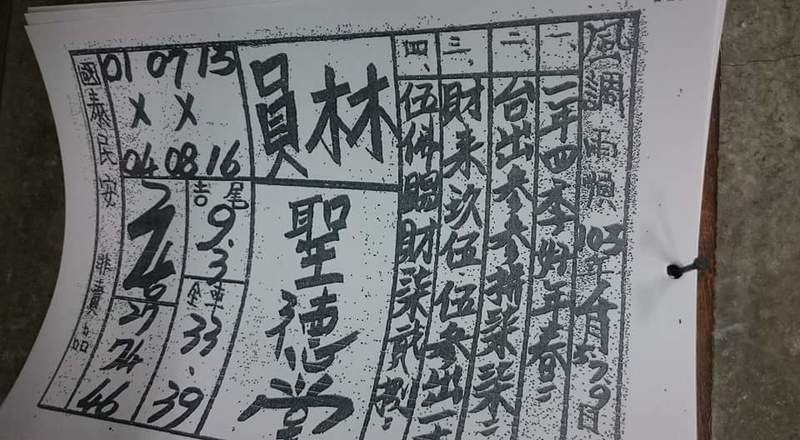 風調雨順 103年 月 5.7.9日
一、二年四季好年春
二、台出参参拾柒柒
三、財来玖伍伍参出
四、伍佛賜財柒貳捌
員林
聖德堂
01 07 13
X X
04 08 16
吉尾
9.3
全車
33.39
27
74
46
國泰民安 非賣品